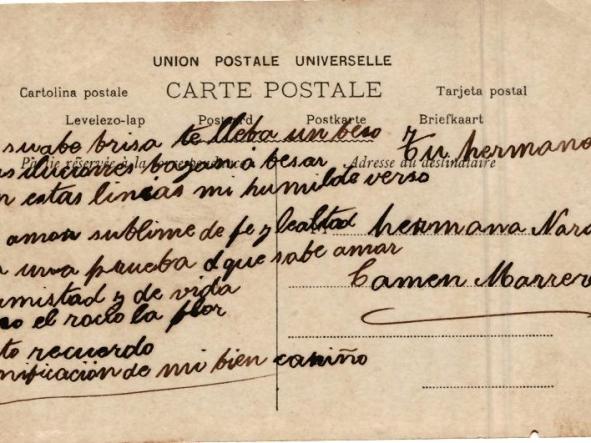 UNION POSTALE UNIVERSELLE
CARTE POSTALE
Cartolina postale
Tarjeta postal
Levelezo-lap
Postcard
Postkarte
Briefkaart
suabe brisa te lleba un beso
iluciones bajan á besar
n estas lineas mi humilde verso
amor sublime de fe y lealtad
una prueba d que sabe amar
mistad y de vida
o el rocio la flor
to recuerdo
nificacion de mi bien cariño
Partie réservée à la correspondance
Adresse du destinataire
Tu hermano
hermana Nar
Carmen Marrer